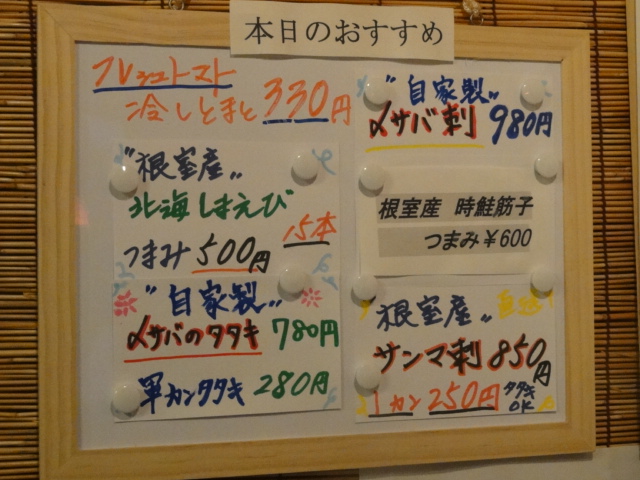 本日のおすすめ
フレシュトマト
冷しとまと 330円
"根室産"
北海しまえび
15本
つまみ 500円
"自家製"
〆サバのタタキ 780円
軍カンタタキ 280円
"自家製"
〆サバ刺 980円
根室産 時鮭筋子
つまみ¥600
根室産"
サンマ刺 850円
1カン 250円 タタキOK